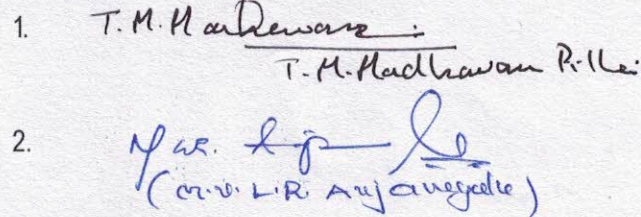 1. T.M. Madhavan
T.M. Madhavan Pillai
2.
(M.V.L.R. Anjaneyulu)